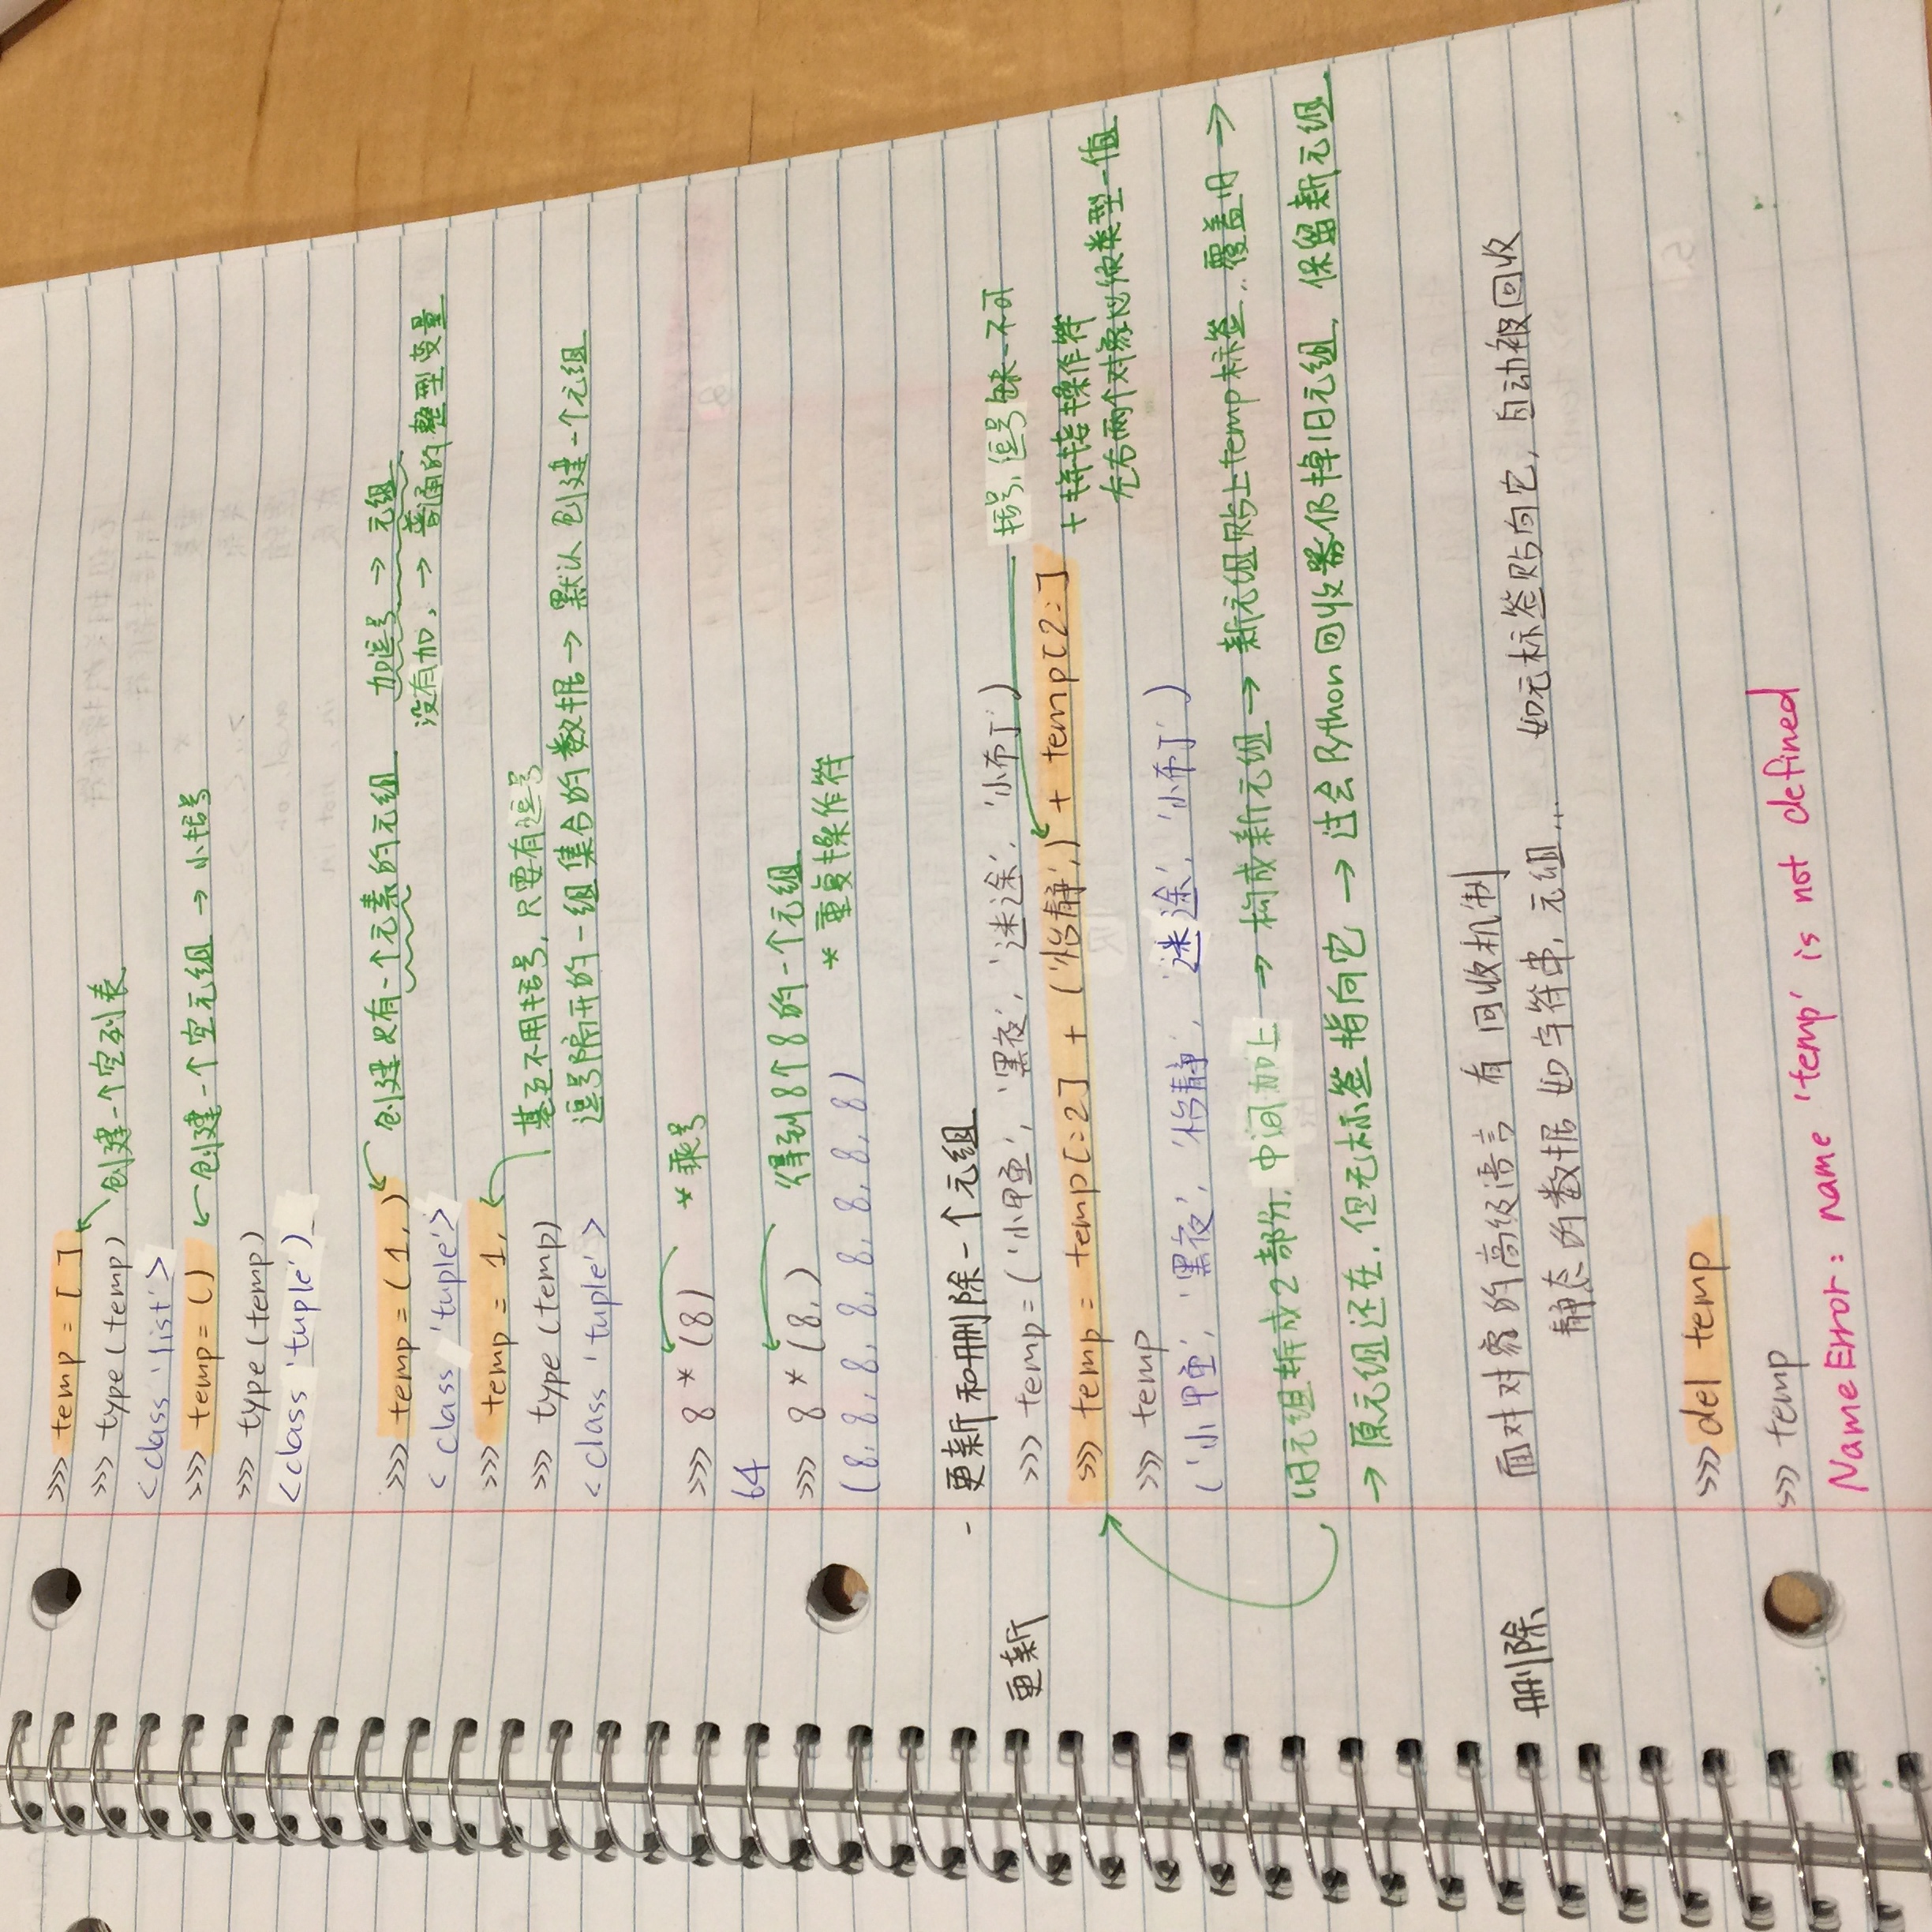 >>> temp = [ ]
>>> type(temp) 创建一个空列表
<class 'list'>
>>> temp = () ← 创建一个空元组 → 小括号
>>> type(temp)
<class 'tuple'>
>>> temp = (1,) 创建只有一个元素的元组 加逗号 → 元组
<class 'tuple'> 没有加, → 普通的整型变量
>>> temp = 1, 甚至不用括号, 只要有逗号
>>> type(temp) 逗号隔开的一组集合的数据 → 默认创建一个元组
<class 'tuple'>
>>> 8 * (8) * 乘号
64
>>> 8 * (8,) 得到8个8的一个元组
(8, 8, 8, 8, 8, 8, 8, 8) * 重复操作符
- 更新和删除一个元组
更新 >>> temp = ('小甲鱼', '黑夜', '迷途', '小布丁') 括号, 逗号缺一不可
>>> temp = temp[:2] + ('怡静',) + temp[2:] + 拼接操作符
左右两个对象必须类型一值
>>> temp
('小甲鱼', '黑夜', '怡静', '迷途', '小布丁')
旧元组拆成2部份, 中间加上 → 构成新元组 → 新元组贴上temp标签.. 覆盖旧 →
→ 原元组还在, 但无标签指向它 → 过会Python回收器仍掉旧元组, 保留新元组
删除 面对对象的高级语言 有 回收机制
静态的数据 如 字符串, 元组... 如无标签贴向它, 自动被回收
>>> del temp
>>> temp
NameError: name 'temp' is not defined